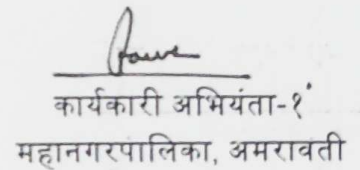 कार्यकारी अभियंता-१
महानगरपालिका, अमरावती